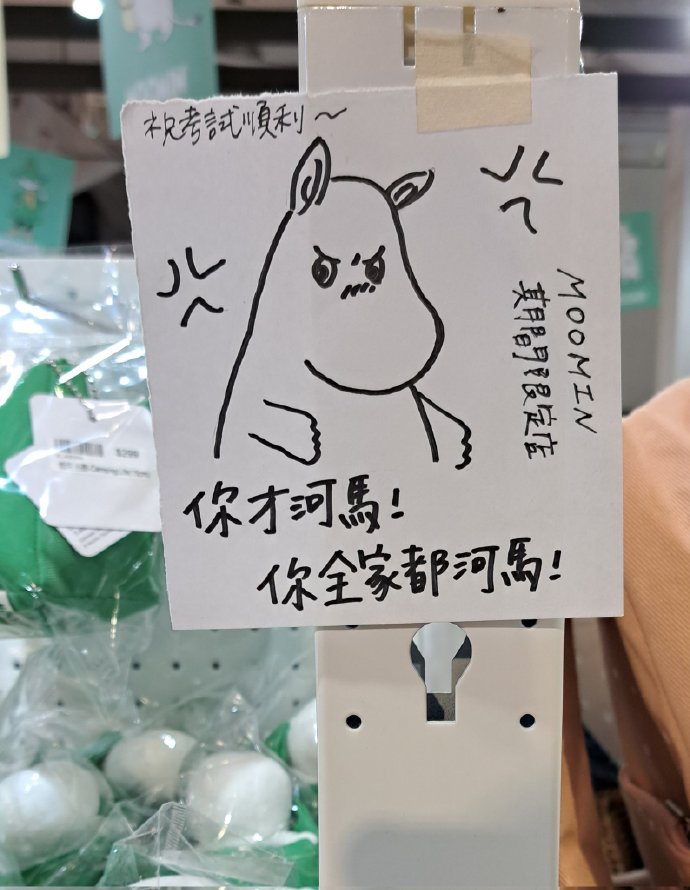 祝考試順利～
MOOMIN
期間限定店
你才河馬！
你全家都河馬！
$299